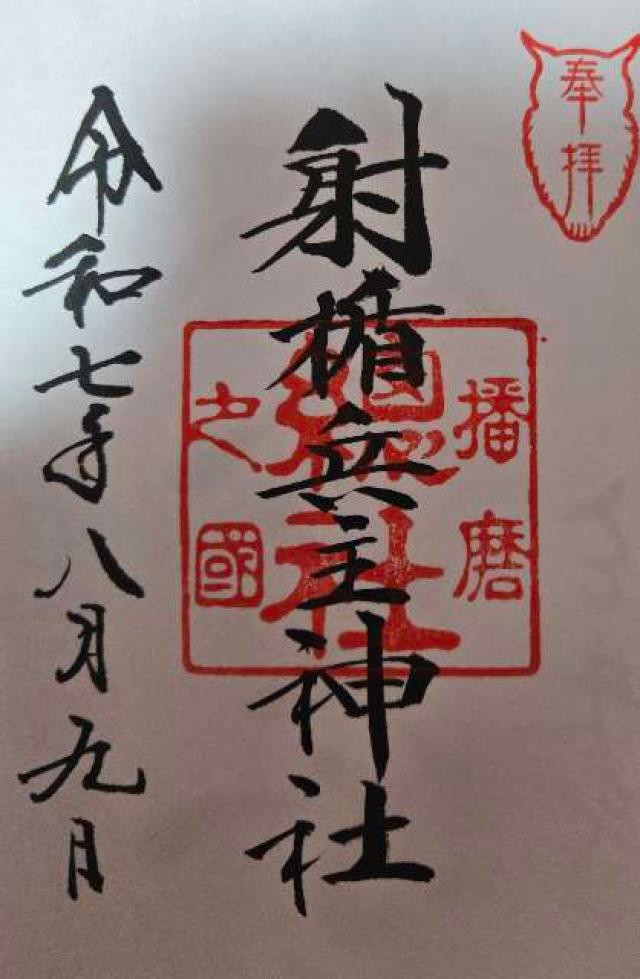 奉拝
射楯兵主神社
播磨
之國
總社
令和七年八月九日